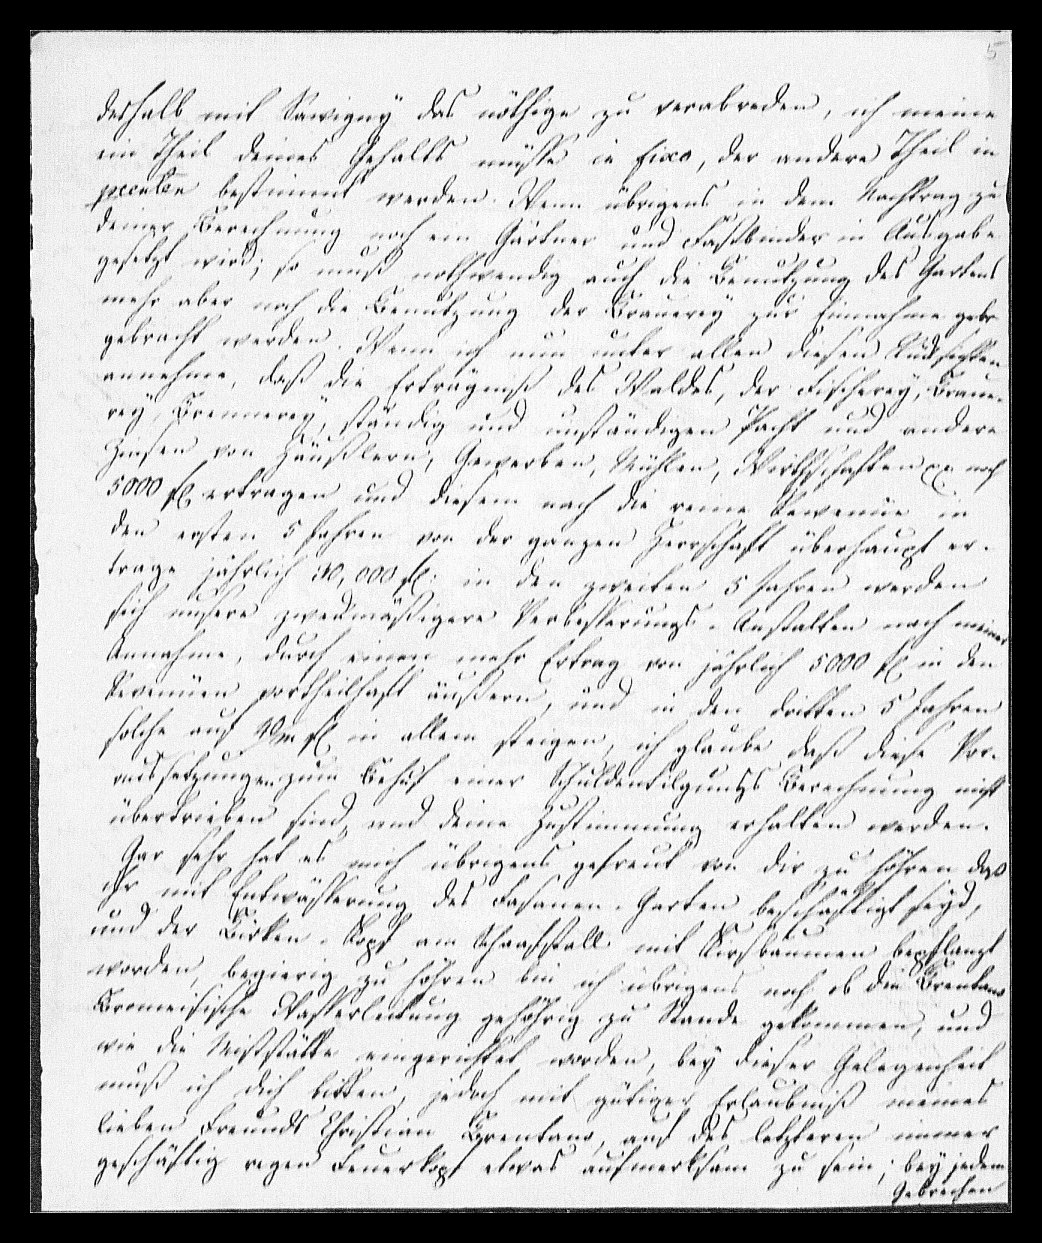 5
deshalb mit Savigny das nöthige zu verabreden, ich meine
ein Theil deines Gehalts müsse in fixo, der andere Theil in
procenten bestimmt werden. Wenn übrigens in dem Nachtrag zu
deiner Berechnung noch ein Gärtner und Faßbinder in Ausgabe
gesetzt wird; so muß nothwendig auch die Benutzung des Gartens
mehr aber noch die Benutzung der Brauerey zur Einnahme
gebracht werden. Wenn ich nun unter allen diesen Rücksichten
annehme, daß die Erträgniß des Waldes, der Fischerey, Braue-
rey, Brennerey, ständig und unständigen Pacht und andere
Zinsen von Häußlern, Gewerben, Mühlen, Wirthschaften noch
5000 fl ertragen und diesem nach die reine Revenüe in
den ersten 5 Jahren von der ganzen Herrschaft überhaupt er-
trage jährlich 30,000 fl: in den zweiten 5 Jahren werden
sich unsere zweckmäßigere Verbesserungs-Anstalten nach meiner
Annahme, durch einen mehr Ertrag von jährlich 5000 fl in den
Revenüen vortheilhaft äußern, und in den dritten 5 Jahren
solche auf 40/m fl in allem steigen, ich glaube daß diese Vor-
aussetzungen zum Behuf einer Schuldentilgungs Berechnung nicht
übertrieben sind, und deine Zustimmung erhalten werden.
Gar sehr hat es mich übrigens gefreut von dir zu hören das
ihr mit Entwässerung des Fasanen-Garten beschäftigt seyd,
und der Birken-Kopf am Schaafstall mit Kirsbäumen bepflanzt
worden, begierig zu hören bin ich übrigens noch ob die Brentano
Bromeisische Wasserleitung gehörig zu Stande gekommen, und
wie die Miststätte eingerichtet worden, bey dieser Gelegenheit
muß ich dich bitten, jedoch mit gütiger Erlaubniß meines
lieben Freunds Christian Brentano, auf des letzteren immer
geschäftig regen Feuerkopf etwas aufmerksam zu sein; bey jedem
Gebrechen